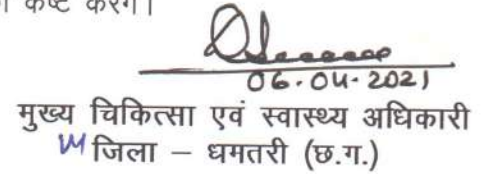 कष्ट करेंगे।
06-04-2021
मुख्य चिकित्सा एवं स्वास्थ्य अधिकारी
जिला – धमतरी (छ.ग.)